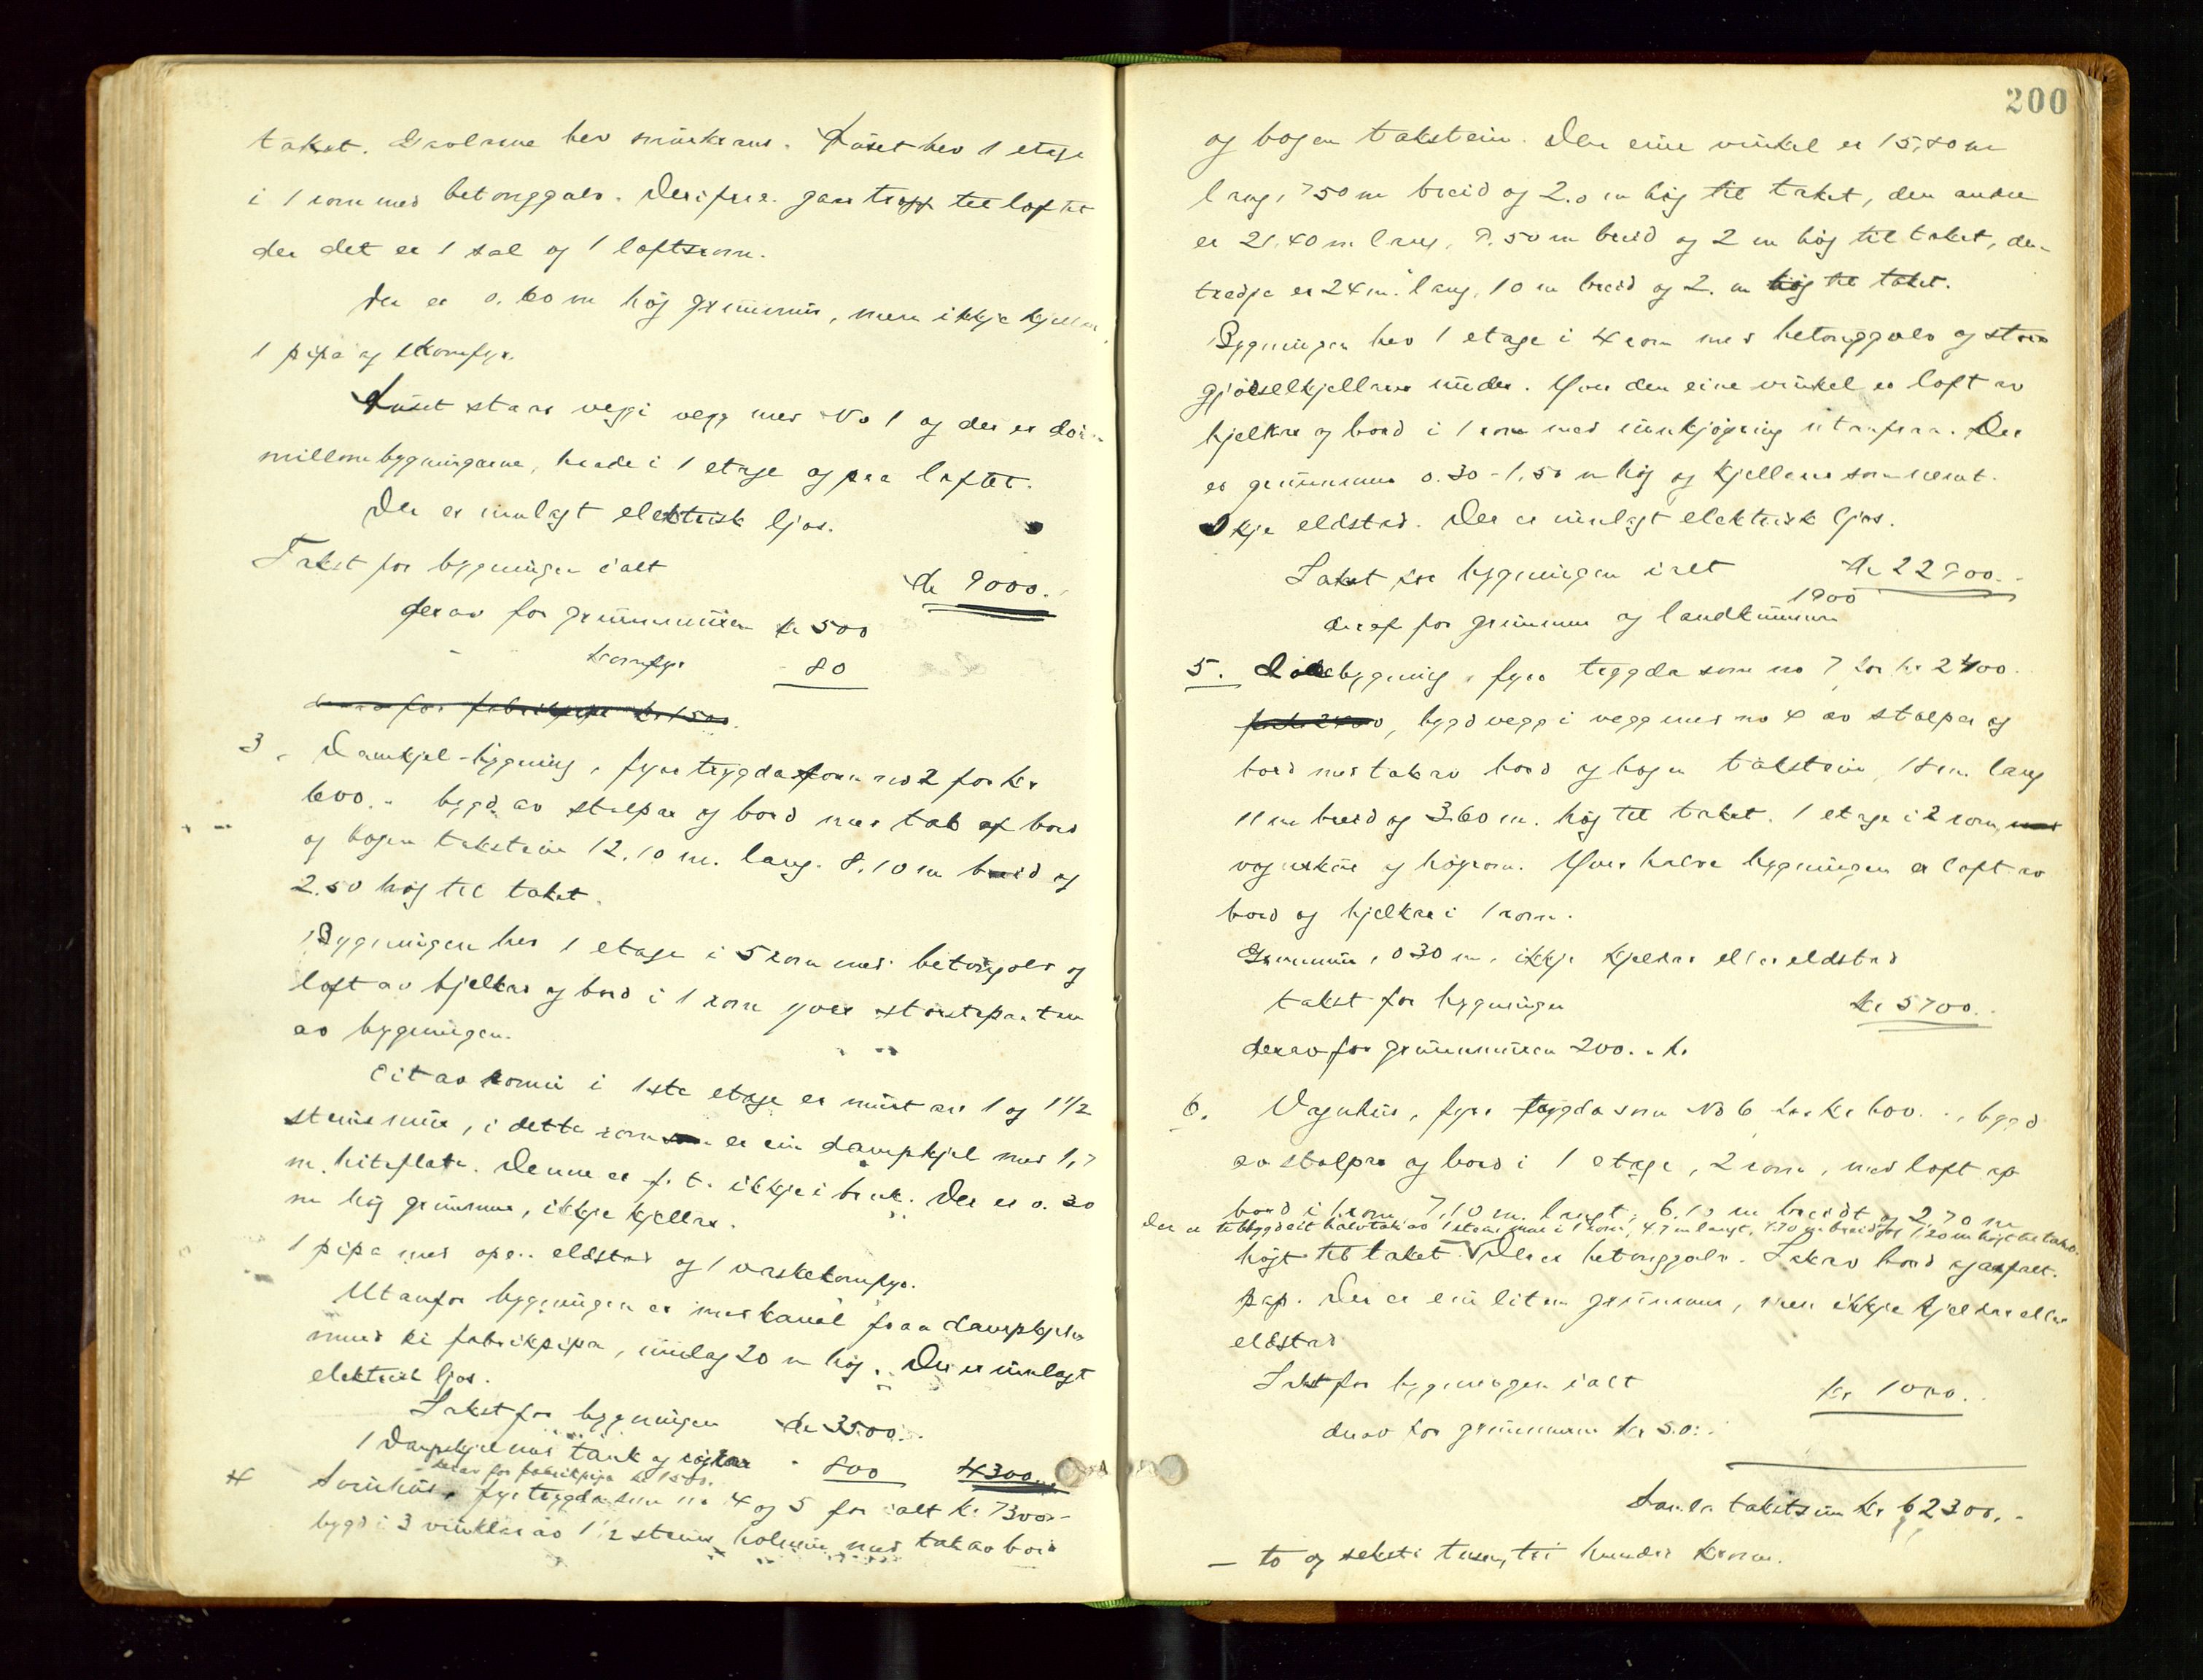 taket. Gavlarne hev murkrans. Huset hev 1 etage
i 1 rom med betonggolv. Derifraa gaar trapp til loftet
der det er 1 sal og 1 loftsrom.
Der er 0.60 m høg grunnmur, men ikkje kjellar,
1 pipa og komfyr.
Huset staar vegg i vegg med No 1 og der er dör
millom bygningarne, baade i 1 etage og paa loftet.
Der er innlagt elektrisk ljos.
Takst for bygningen i alt kr 9000.-
derav for grunnmuren kr 500
- komfyr - 80
derav for fabrikpipe kr 1500.
3. Damkjel-bygning, fyrr trygda som no 2 for kr
600.- bygd av stolpar og bord med tak af bord
og bogen takstein 12.10 m. lang. 8.10 m breid og
2.50 høg til taket.
Bygningen hev 1 etage i 5 rom med betonggolv og
loft av bjelkar og bord i 1 rom yver storsteparten
av bygningen.
Eit av romi i 1ste etage er murt av 1 og 1 1/2
steins mur, i dette rom er ein dampkjel med 1,7
m. hiteflate. Denne er f. t. ikkje i bruk. Der er 0.30
m høg grunnmur, ikkje kjellar.
1 pipa med open eldstad og 1 vaskekomfyr.
Utanfor bygningen er mur kanal fraa dampkjelen
mund ei fabrikpipa, innlag 20 m høg. Der er innlagt
elektrisk ljos.
Takst for bygningen kr 3500.-
1 Dampkjel med tank og röjrar - 800 4300.-
derav for fabrikpipa kr 1500.
4 Svinhus, fyr trygda som no 4 og 5 for i alt kr 7300.-
bygd i 3 vinklar av 1 1/2 steins holmur med tak av bord
200
og bogen takstein. Den eine vinkel er 15,40 m
lang, 7.50 m breid og 2.0 m høg til taket, den andre
er 21.40 m lang, 9.50 m breid og 2 m høg til taket, den
tredje er 24 m. lang, 10 m breid og 2. m høg til taket.
Bygningen hev 1 etage i 4 rom med betonggolv og stor
gjödselkjellar under. Yver den eine vinkel er loft av
bjelkar og bord i 1 rom med innkjøyring utanfraa. Der
er grunnmur 0.30 - 1.50 m høg og kjellar som nemt.
Ikkje eldstad. Der er innlagt elektrisk ljos.
Takst for bygningen i alt kr 22900.-
deraf for grunnmur og landkummur 1900
5. Lödebygning, fyrr trygda som no 7 for kr 2400.
for kr 2400, bygd vegg i vegg med no 4 av stolpar og
bord med tak av bord og bogen takstein, 18 m. lang
11 m breid og 3.60 m. høg til taket. 1 etage i 2 rom, med
vognskur og høyrom. Yver halve bygningen er loft av
bord og bjelkar i 1 rom.
Grunnmur, 0.30 m, ikkje kjellar eller eldstad
takst for bygningen kr 5700.-
derav for grunnmuren 200.- kr
6. Vognhus, fyrr trygda som No 6 for kr 600.-, bygd
av stolpar og bord i 1 etage, 2 rom, med loft af
bord i 1 rom. 7,10 m. langt, 6.10 m breidt og 2.70 m
Der er tilbygd eit halvtak av 1 steins mur i 1 rom, 4.7 m langt, 4.70 m breidt og 1,20 m høgt til taket.
høgt til taket. Der er betonggolv. Tak av bord og asfalt-
pap. Der er ein liten grunnmur, men ikkje kjellar eller
eldstad
Takst for bygningen i alt kr 1000.-
derav for grunnmuren kr 50.-
Samla takstsum kr 62300.-
- to og seksti tusen, tri hundre kronor.